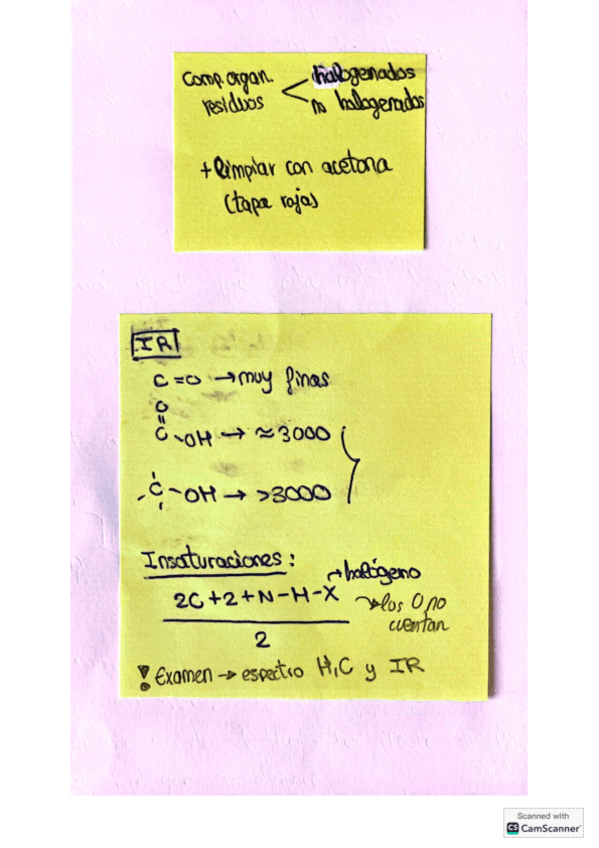 Comp. organ. halogenados
residuos no halogenados
+ limpiar con acetona
(tapa roja)
IR
C=O → muy finas
O
||
C-OH → ≈3000
-C-OH → >3000
Insaturaciones:
→ halógeno
2C+2+N-H-X
→ los O no
cuentan
2
! Examen → espectro H, C y IR
Scanned with
CS CamScanner